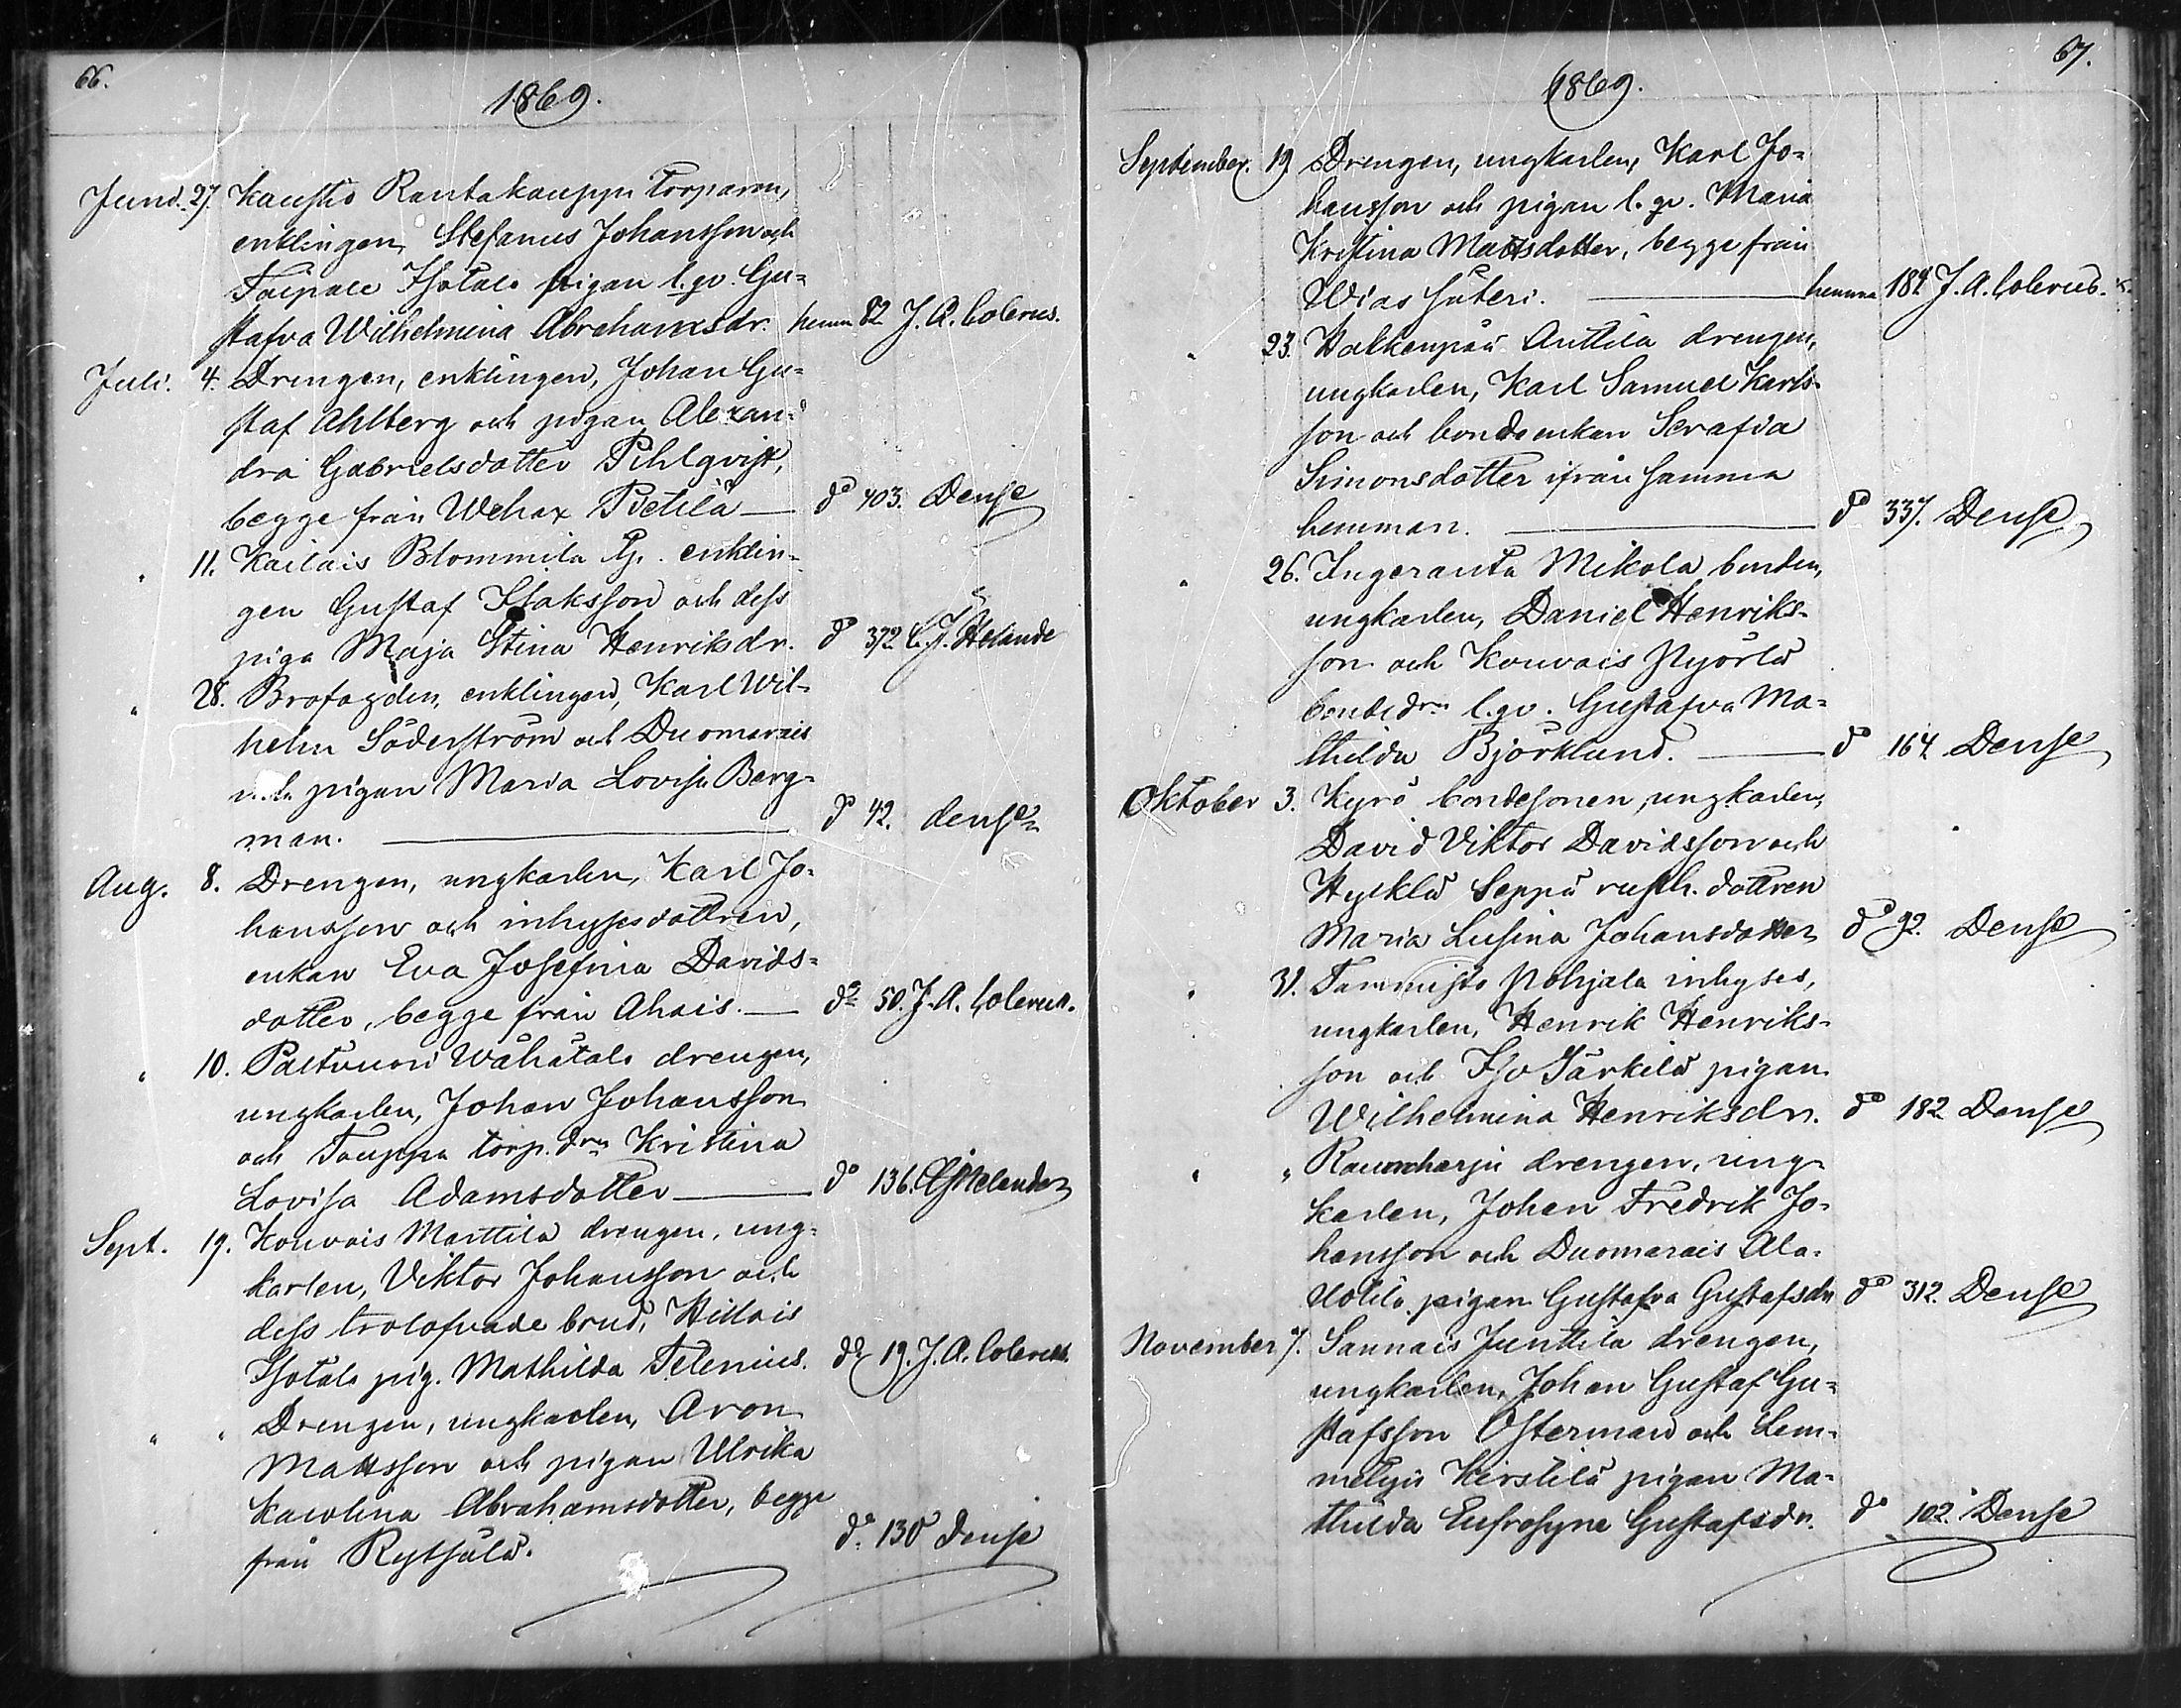 66.
1869.
Juni. 27. Kausto Rantakauppi torparen,
enklingen, Stefanus Johansson och
Taipale Isotalo pigan l. qv. Gu-
stafva Wilhelmina Abrahamsdr. hemma 82 J. A. Colerus.
Juli. 4. Drengen, enklingen, Johan Gu-
staf Ahlberg och pigan Alexan-
dra Gabrielsdotter Pihlqvist,
begge från Wehax Pietilä — do 403. Dense
" 11. Kailais Blommila enklin-
gen Gustaf Isaksson och dess
piga Maja Stina Henriksdr. do 372 C. J. Helande
" 28. Brofogden, enklingen, Karl Wil-
helm Söderström och Duomarais
pigan Maria Lovisa Berg-
man. — do 42. dense
Aug. 8. Drengen, ungkarlen, Karl Jo-
hansson och inhysesdottren,
enkan Eva Josefina Davids-
dotter, begge från Ahais. — do 50. J. A. Colerus.
" 10. Paltvuori Wähätalo drengen,
ungkarlen, Johan Johansson
och Tauppa torp. drn Kristina
Lovisa Adamsdotter — do 136. CJHelander
Sept. 19. Kouvais Marttila drengen, ung-
karlen, Viktor Johansson och
dess trolofvade brud, Hillais
Isotalo pig. Mathilda Telenius. do 19. J. A. Colerus.
" " Drengen, ungkarlen, Aron
Mattsson och pigan Ulrika
Karolina Abrahamsdotter, begge
från Rytsälä. do 130 Dense
67.
1869.
September. 19. Drengen, ungkarlen, Karl Jo-
hansson och pigan l. qv. Maria
Kristina Mattsdotter, begge från
Wias säteri. — hemma 182 J. A. Colerus.
" 23. Halkenpää Anttila drengen,
ungkarlen, Karl Samuel Karls-
son och bondeenkan Serafia
Simonsdotter ifrån samma
hemman. — do 337. Dense
" 26. Ingeranta Mikola bonden,
ungkarlen, Daniel Henriks-
son och Kouvais Pyörlä
bondedrn l. qv. Gustafva Ma-
thilda Björklund. — do 164 Dense
Oktober 3. Kyrö bondesonen, ungkarlen,
David Viktor Davidsson och
Seppä rusth. dottren
Maria Lusina Johansdotter do 92. Dense
" 31. Tammisto Pohjala inhyses,
ungkarlen, Henrik Henriks-
son och Iso Järkilä pigan
Wilhelmina Henriksdr. do 182 Dense
" " Raumharju drengen, ung-
karlen, Johan Fredrik Jo-
hansson och Duomarais Ala-
Uotila pigan Gustafva Gustafsdr do 312. Dense
November 7. Sannais Junttila drengen,
ungkarlen, Johan Gustaf Gu-
stafsson Osterman och Lem-
metyis Kirstilä pigan Ma-
thilda Eufrosyne Gustafsdr. do 102. Dense